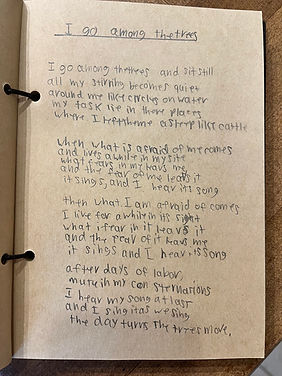 I go among thetrees
I go among thetrees and sit still
all my stirring becomes quiet
around me like circles on water
my task lie in there places
where I left theme asleep like cattle
when what is afraid of me comes
and lives awhile in my site
what fears in my leavs me
and the fear of me leavs it
it sings, and I hear its song
then what I am afraid of comes
I like for awhile in its sight
what i fear in it, leavs it
and the fear of it leavs me
it sings and I hear its song
after days of labor,
mute in my con sternations
I hear my song at last
and I sing it as we sing
the day turns The trees move.